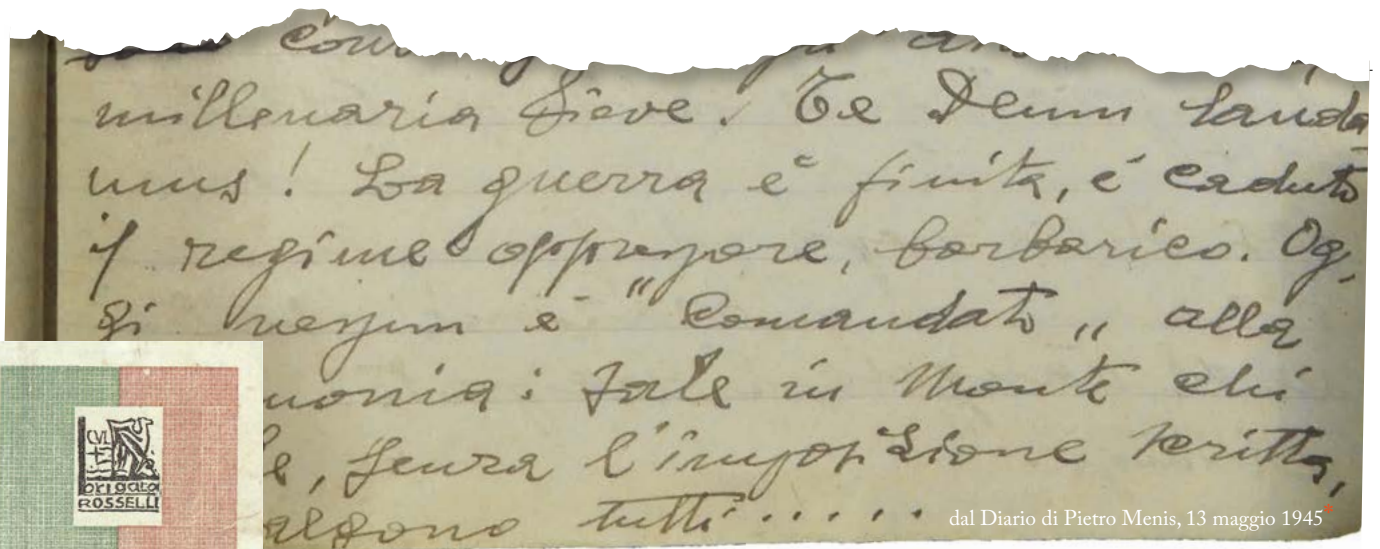 millenaria Pieve. Te Deum lauda
mus! La guerra è finita, è caduto
il regime oppressore, barbarico. Og-
gi nessun è "comandato" alla
monia: sale in Monte chi
le, senza l'imposizione scritta,
algono tutti.....
CVL
brigata
ROSSELLI
dal Diario di Pietro Menis, 13 maggio 1945*